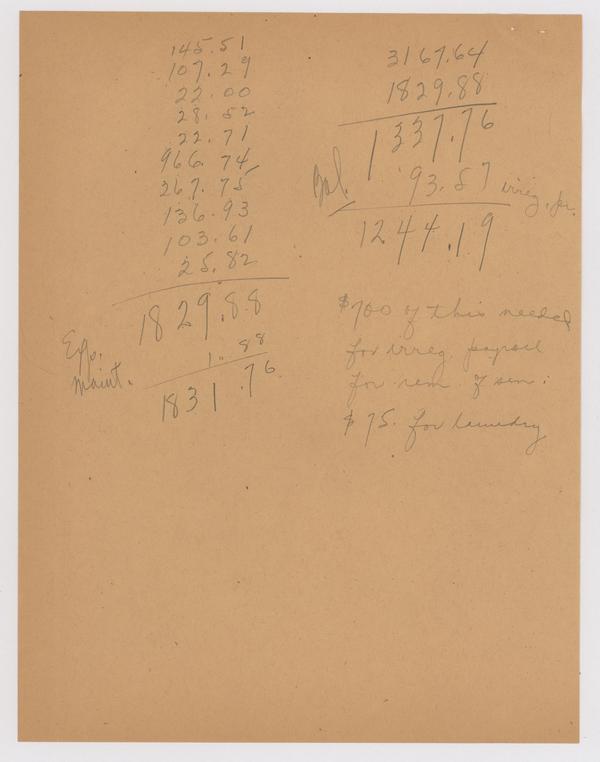 145.51
107.29
22.00
28.52
22.71
966.74
267.75
136.93
103.61
25.82
1829.88
Exp. 1.88
Maint.
1831.76
3167.64
1829.88
1337.76
Bal. 93.57 irreg. pr.
1244.19
$700 of this needed
for irreg. payroll
for rem. of sem.
$75. for laundry